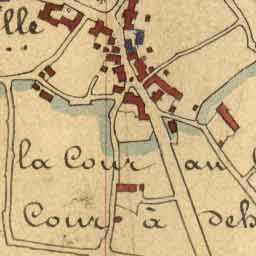 lle
la Cour au
Cour à deh